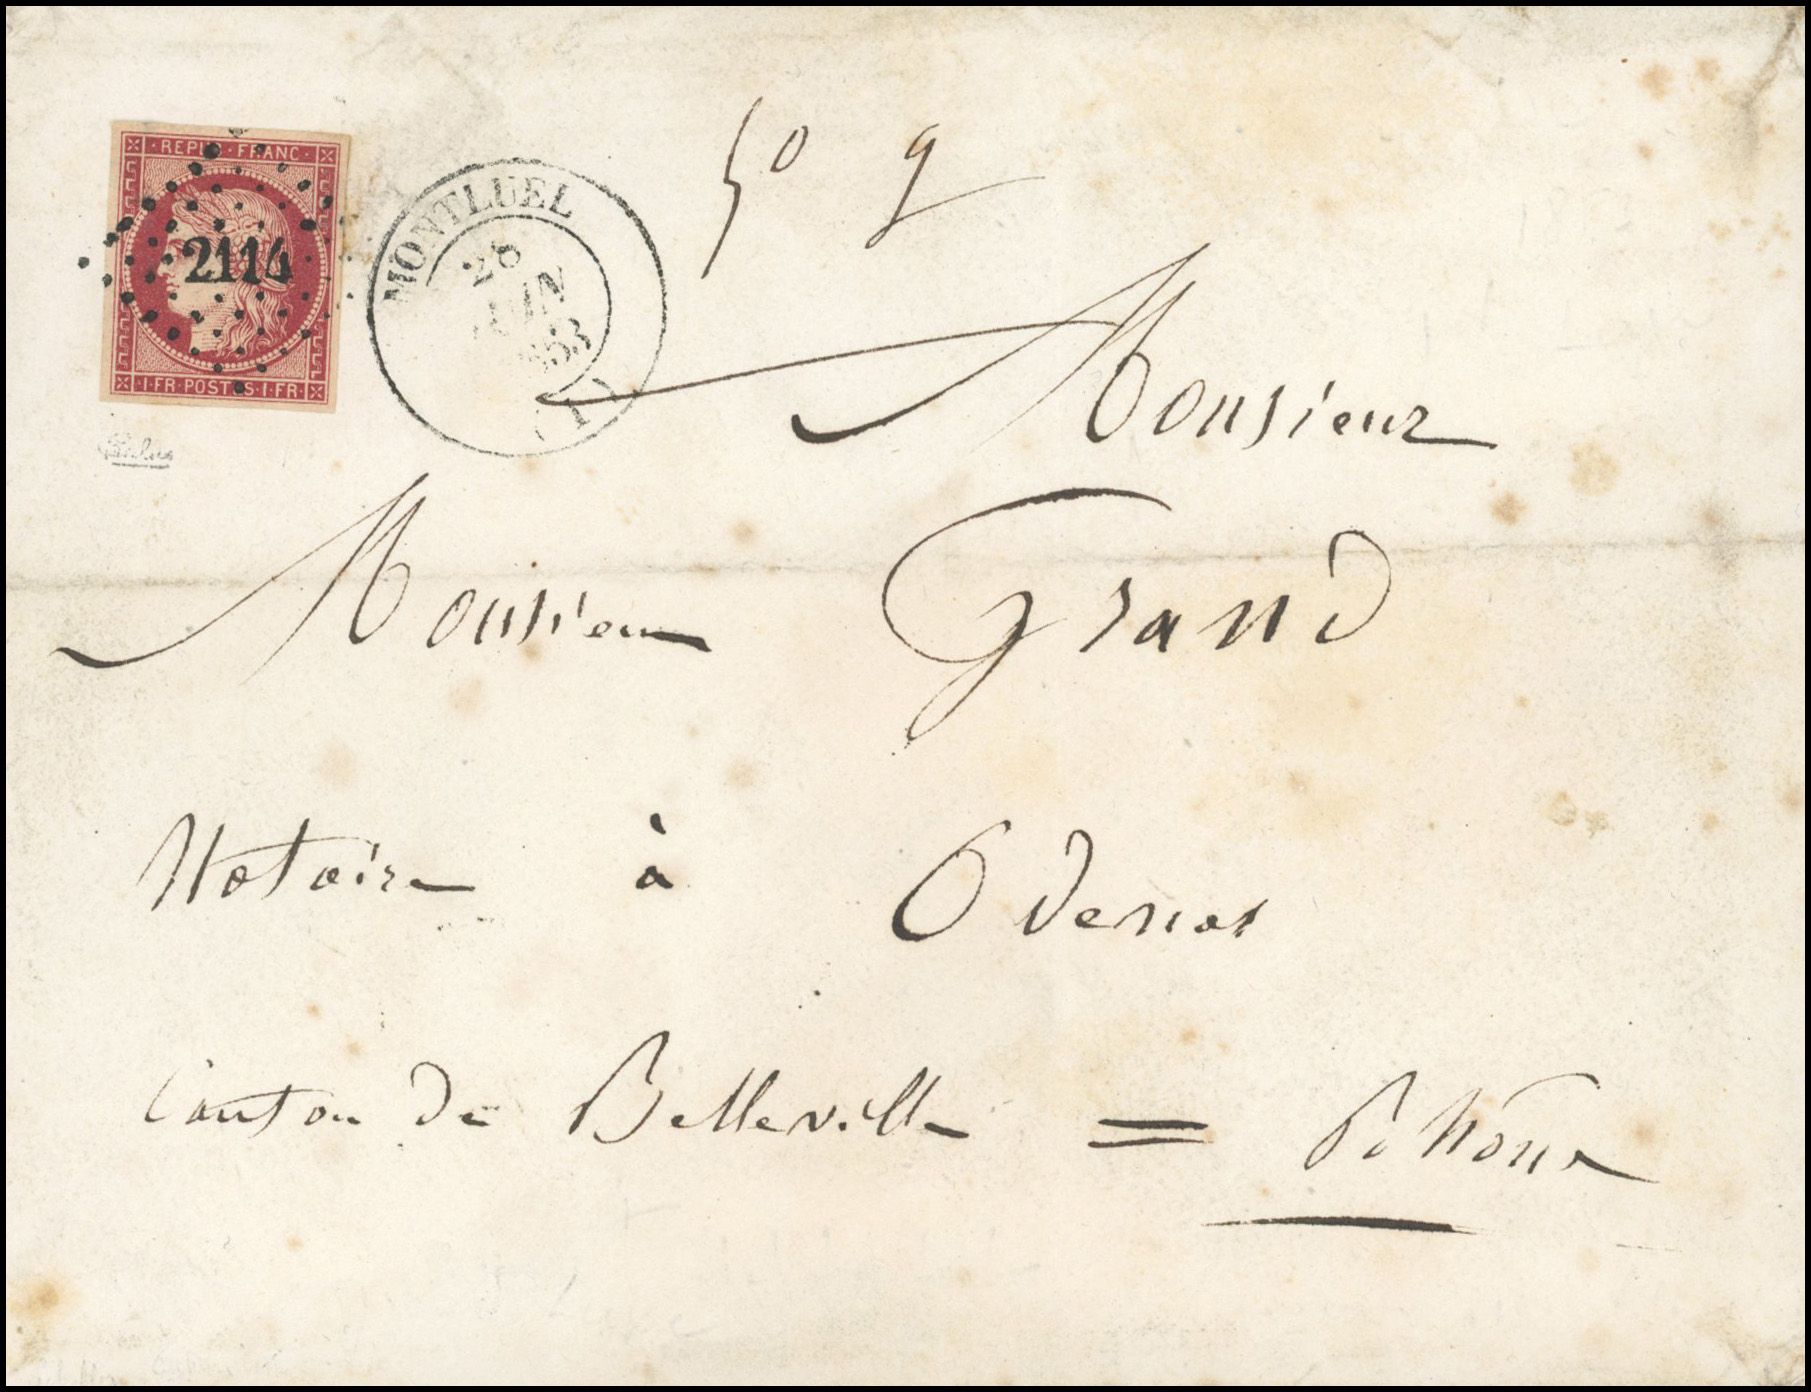 REPUB · FRANC ·
2114
· 1 · FR · POSTES · 1 · FR ·
MONTLUEL
28
JUIN
1853
(1)
50 g
Monsieur
Monsieur Grand
Notaire à Odenas
Canton de Belleville = Rhône